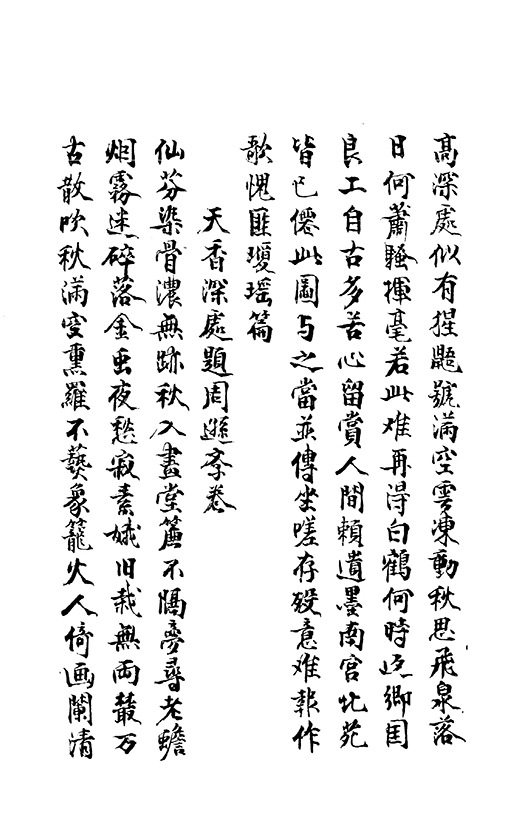 高深處似有猩鼯號滿空雲凍動秋思飛泉落
日何蕭騷揮毫若此难再得白鶴何時返鄉国
良工自古多苦心留賞人間賴遺墨南宮北苑
皆已僊此圖与之當並傳坐嗟存殁意难報作
歌愧匪瓊瑶篇
天香深處題周遜学卷
仙芬染骨濃無跡秋入畫堂簾不隔夢尋老蟾
烟霧迷碎落金虫夜愁寂素娥旧栽無両叢万
古散吹秋滿空熏羅不爇象籠火人倚画闌清